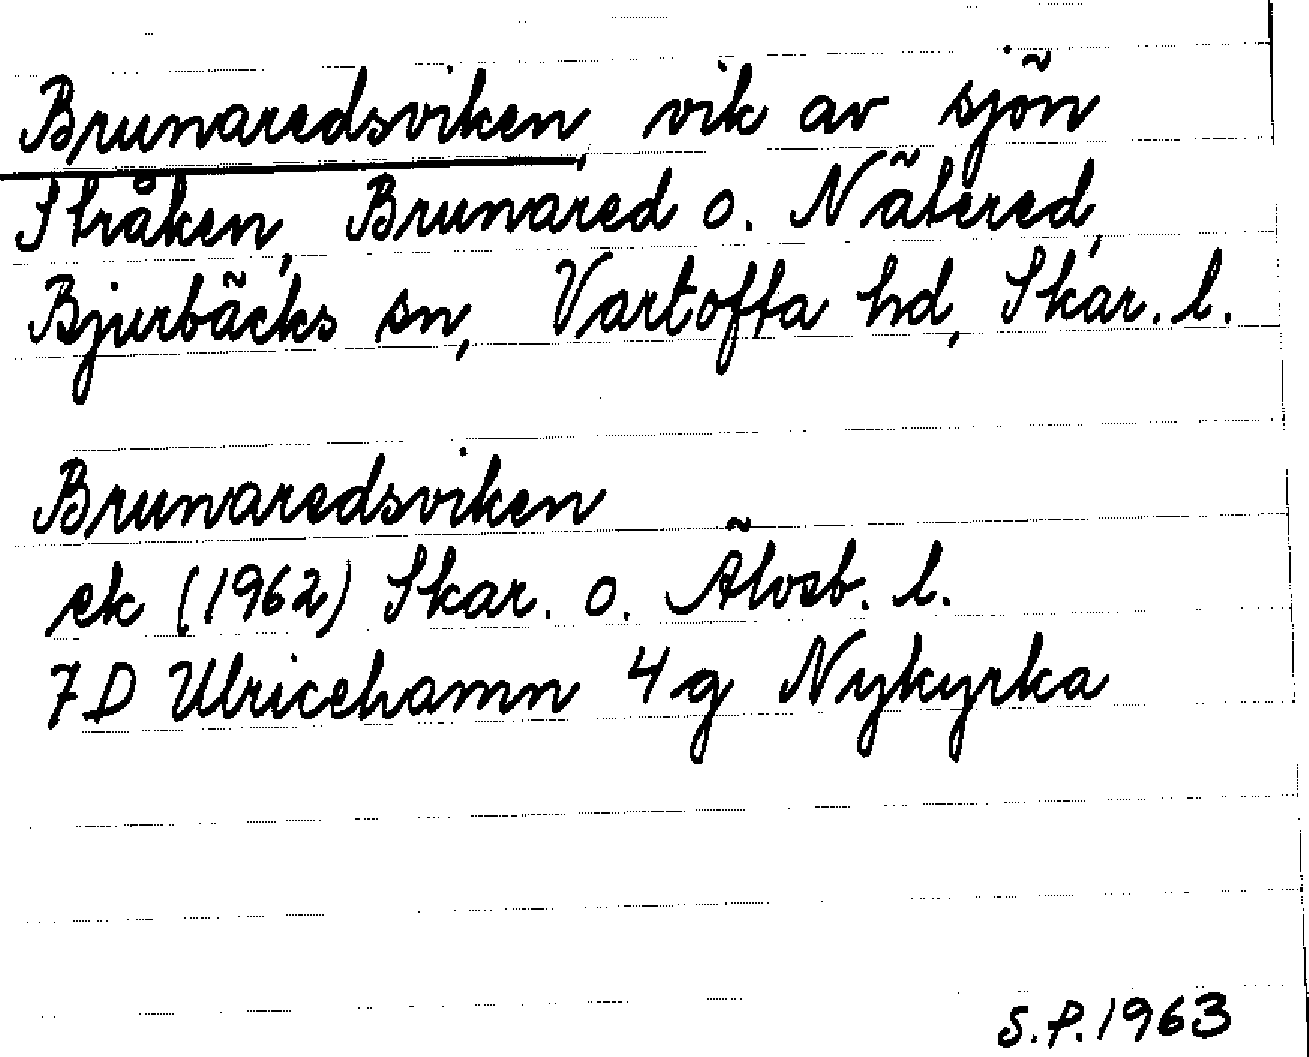 Brunaredsviken, vik av sjön
Stråken, Brunared o. Nätered,
Bjurbäcks sn, Vartofta hd, Skar. l.
Brunaredsviken
ek (1962) Skar. o. Älvsb. l.
7D Ulricehamn 4g Nykyrka
S.P. 1963